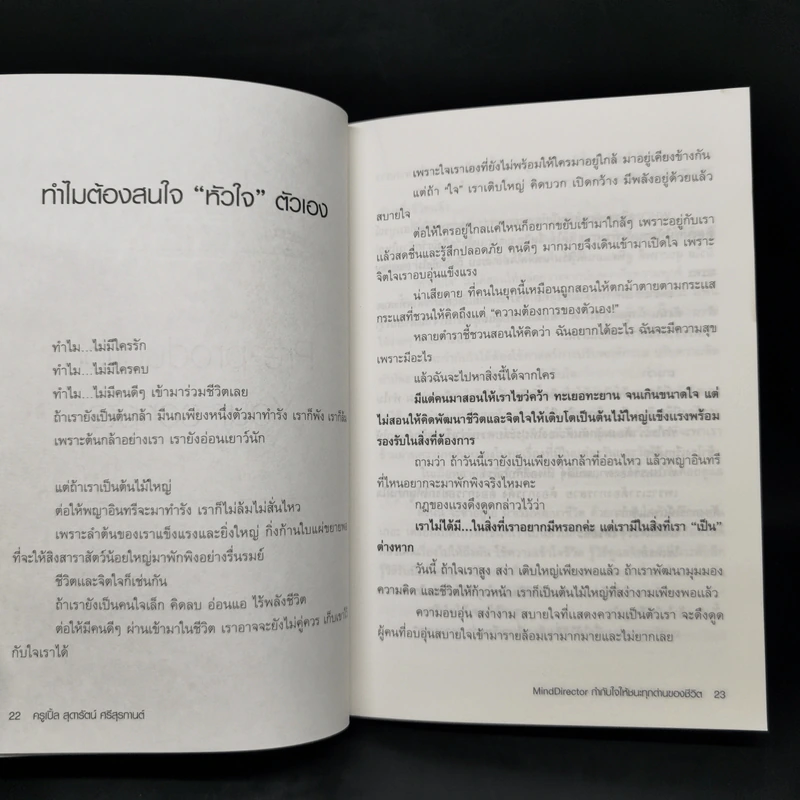 ทำไมต้องสนใจ “หัวใจ” ตัวเอง
ทำไม...ไม่มีใครรัก
ทำไม...ไม่มีใครคบ
ทำไม...ไม่มีคนดีๆ เข้ามาร่วมชีวิตเลย
ถ้าเรายังเป็นต้นกล้า มีนกเพียงหนึ่งตัวมาทำรัง เราก็พัง เราก็ล้ม
เพราะต้นกล้าอย่างเรา เรายังอ่อนเยาว์นัก
แต่ถ้าเราเป็นต้นไม้ใหญ่
ต่อให้พญาอินทรีจะมาทำรัง เราก็ไม่ล้มไม่สั่นไหว
เพราะลำต้นของเราแข็งแรงและยิ่งใหญ่ กิ่งก้านใบแผ่ขยายพอ
ที่จะให้สิงสาราสัตว์น้อยใหญ่มาพักพิงอย่างรื่นรมย์
ชีวิตและจิตใจก็เช่นกัน
ถ้าเรายังเป็นคนใจเล็ก คิดลบ อ่อนแอ ไร้พลังชีวิต
ต่อให้มีคนดีๆ ผ่านเข้ามาในชีวิต เราอาจจะยังไม่คู่ควร เก็บเขาไว้
กับใจเราได้
22 ครูเปิ้ล สุดารัตน์ ศรีสุรกานต์
เพราะใจเราเองที่ยังไม่พร้อมให้ใครมาอยู่ใกล้ มาอยู่เคียงข้างกัน
แต่ถ้า “ใจ” เราเติบใหญ่ คิดบวก เปิดกว้าง มีพลังอยู่ด้วยแล้ว
สบายใจ
ต่อให้ใครอยู่ไกลแค่ไหนก็อยากขยับเข้ามาใกล้ๆ เพราะอยู่กับเรา
แล้วสดชื่นและรู้สึกปลอดภัย คนดีๆ มากมายจึงเดินเข้ามาเปิดใจ เพราะ
จิตใจเราอบอุ่นแข็งแรง
น่าเสียดาย ที่คนในยุคนี้เหมือนถูกสอนให้ตกม้าตายตามกระแส
กระแสที่ชวนให้คิดถึงแต่ “ความต้องการของตัวเอง!”
หลายตำราชี้ชวนสอนให้คิดว่า ฉันอยากได้อะไร ฉันจะมีความสุข
เพราะมีอะไร
แล้วฉันจะไปหาสิ่งนี้ได้จากใคร
มีแต่คนมาสอนให้เราไขว่คว้า ทะเยอทะยาน จนเกินขนาดใจ แต่
ไม่สอนให้คิดพัฒนาชีวิตและจิตใจให้เติบโตเป็นต้นไม้ใหญ่แข็งแรงพร้อม
รองรับในสิ่งที่ต้องการ
ถามว่า ถ้าวันนี้เรายังเป็นเพียงต้นกล้าที่อ่อนไหว แล้วพญาอินทรี
ที่ไหนอยากจะมาพักพิงจริงไหมคะ
กฎของแรงดึงดูดกล่าวไว้ว่า
เราไม่ได้มี...ในสิ่งที่เราอยากมีหรอกค่ะ แต่เรามีในสิ่งที่เรา “เป็น”
ต่างหาก
วันนี้ ถ้าใจเราสูง สง่า เติบใหญ่เพียงพอแล้ว ถ้าเราพัฒนามุมมอง
ความคิด และชีวิตให้ก้าวหน้า เราก็เป็นต้นไม้ใหญ่ที่สง่างามเพียงพอแล้ว
ความอบอุ่น สง่างาม สบายใจที่แสดงความเป็นตัวเรา จะดึงดูด
ผู้คนที่อบอุ่นสบายใจเข้ามารายล้อมเรามากมายและไม่ยากเลย
MindDirector กำกับใจให้ชนะทุกด่านของชีวิต 23